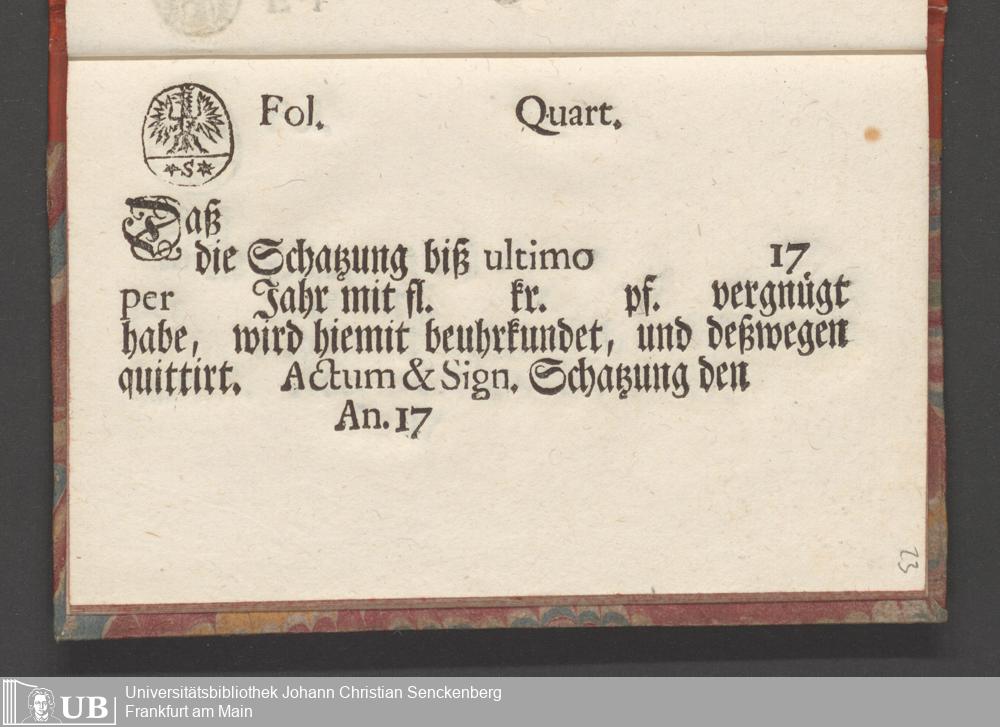 Fol. Quart.
*S*
Daß
die Schatzung biß ultimo 17
per Jahr mit fl. kr. pf. vergnügt
habe, wird hiemit beuhrkundet, und deßwegen
quittirt. Actum & Sign. Schatzung den
An. 17
23
UB Universitätsbibliothek Johann Christian Senckenberg
Frankfurt am Main